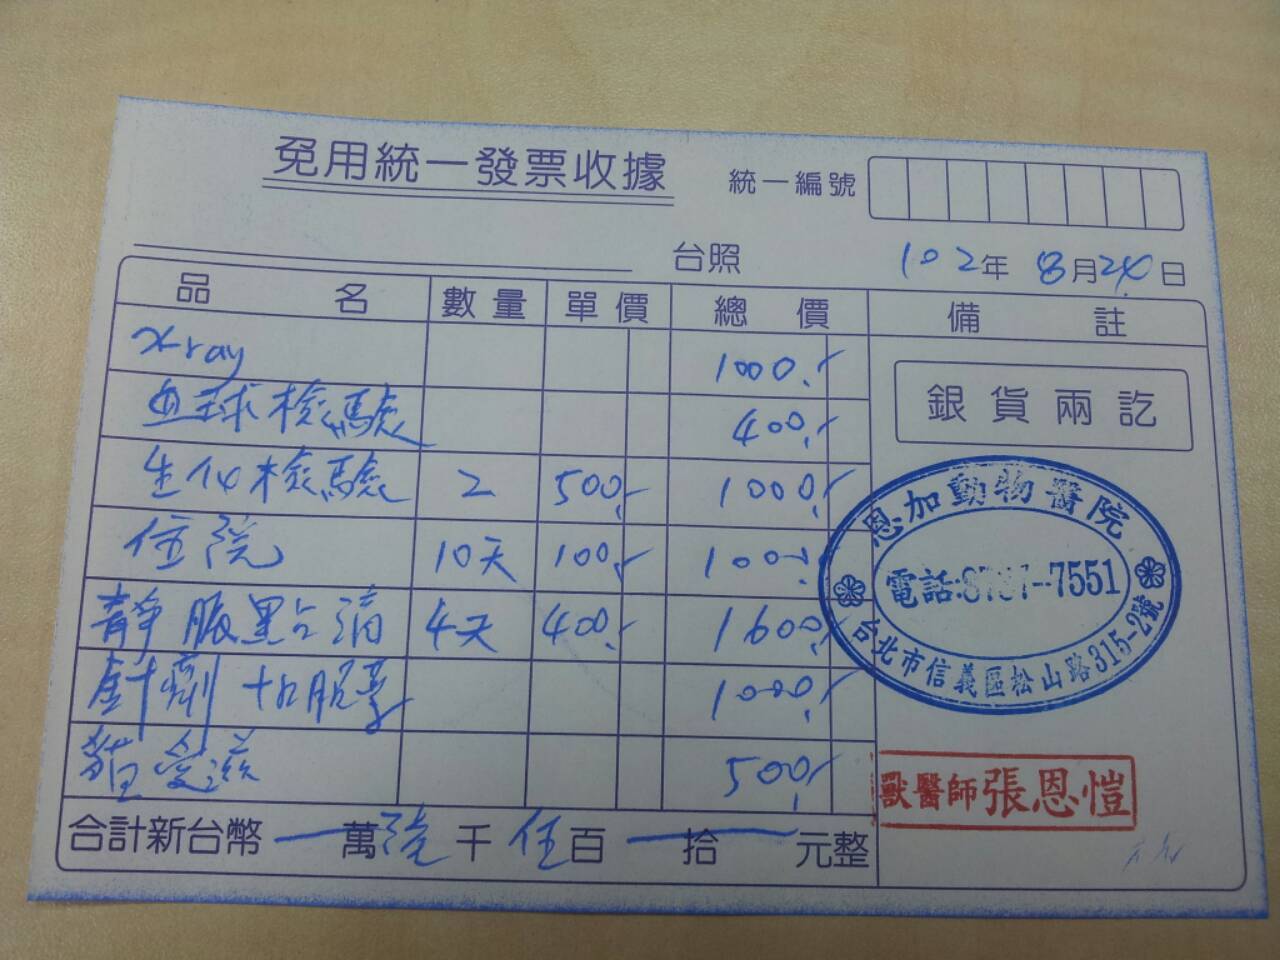 免用統一發票收據
統一編號
台照
102年8月24日
品名 數量 單價 總價 備註
x-ray 1000.-
血球檢驗 400.-
生化檢驗 2 500.- 1000.-
住院 10天 100.- 1000.-
靜脈點滴 4天 400.- 1600.-
針劑 1000.-
貓愛滋 500.-
合計新台幣 萬陸千伍百 拾 元整
銀貨兩訖
恩加動物醫院
電話:
-7551
台北市信義區松山路315-2號
獸醫師張恩愷